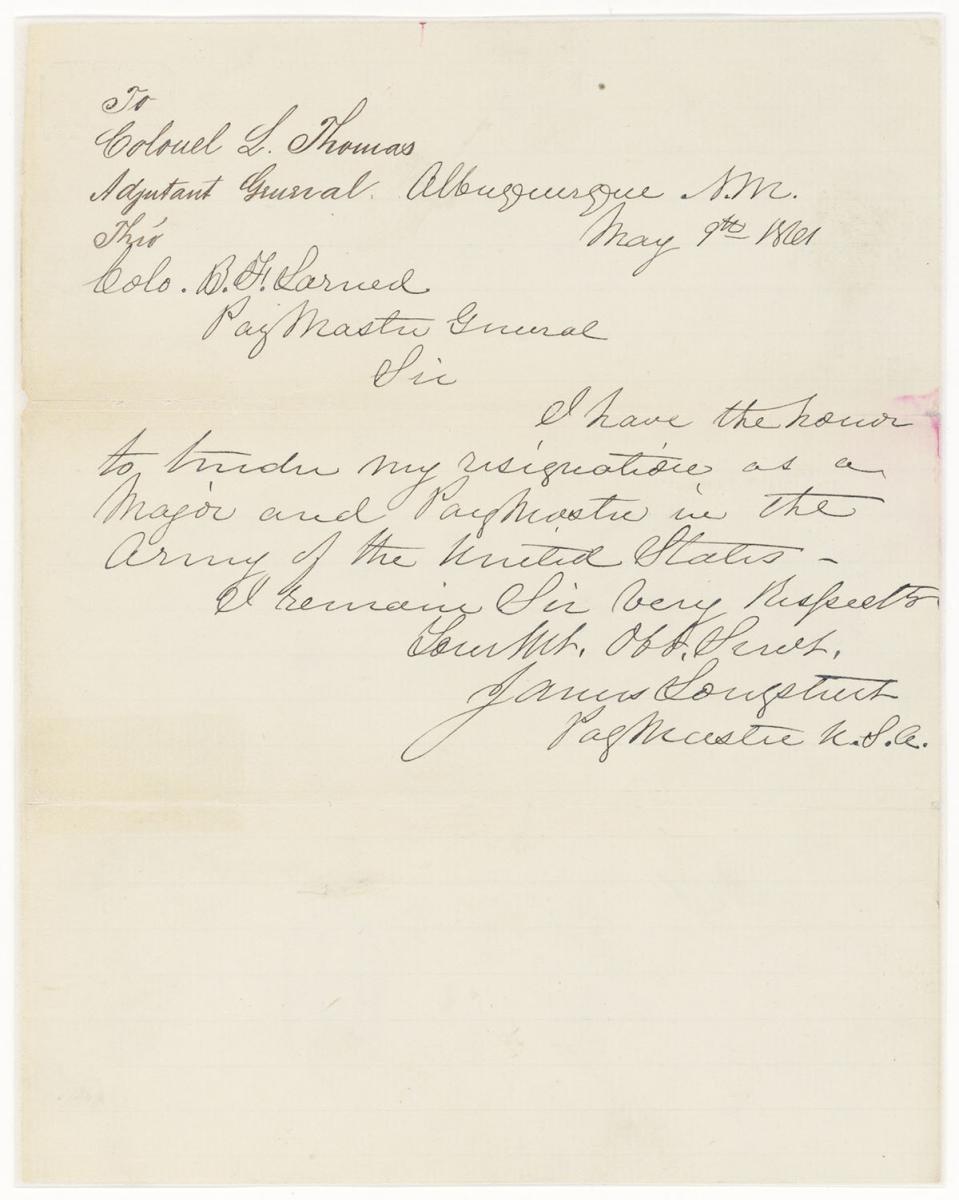 To
Colonel L. Thomas
Adjutant General. Albuquerque N.M.
Thro' May 9th 1861
Colo. B. F. Larned
Pay Master General
Sir
I have the honor
to tender my resignation as a
Major and Pay Master in the
Army of the United States –
I remain Sir Very Respectf
Your Mt. Obt. Servt.
James Longstreet
Pay Master U.S.A.